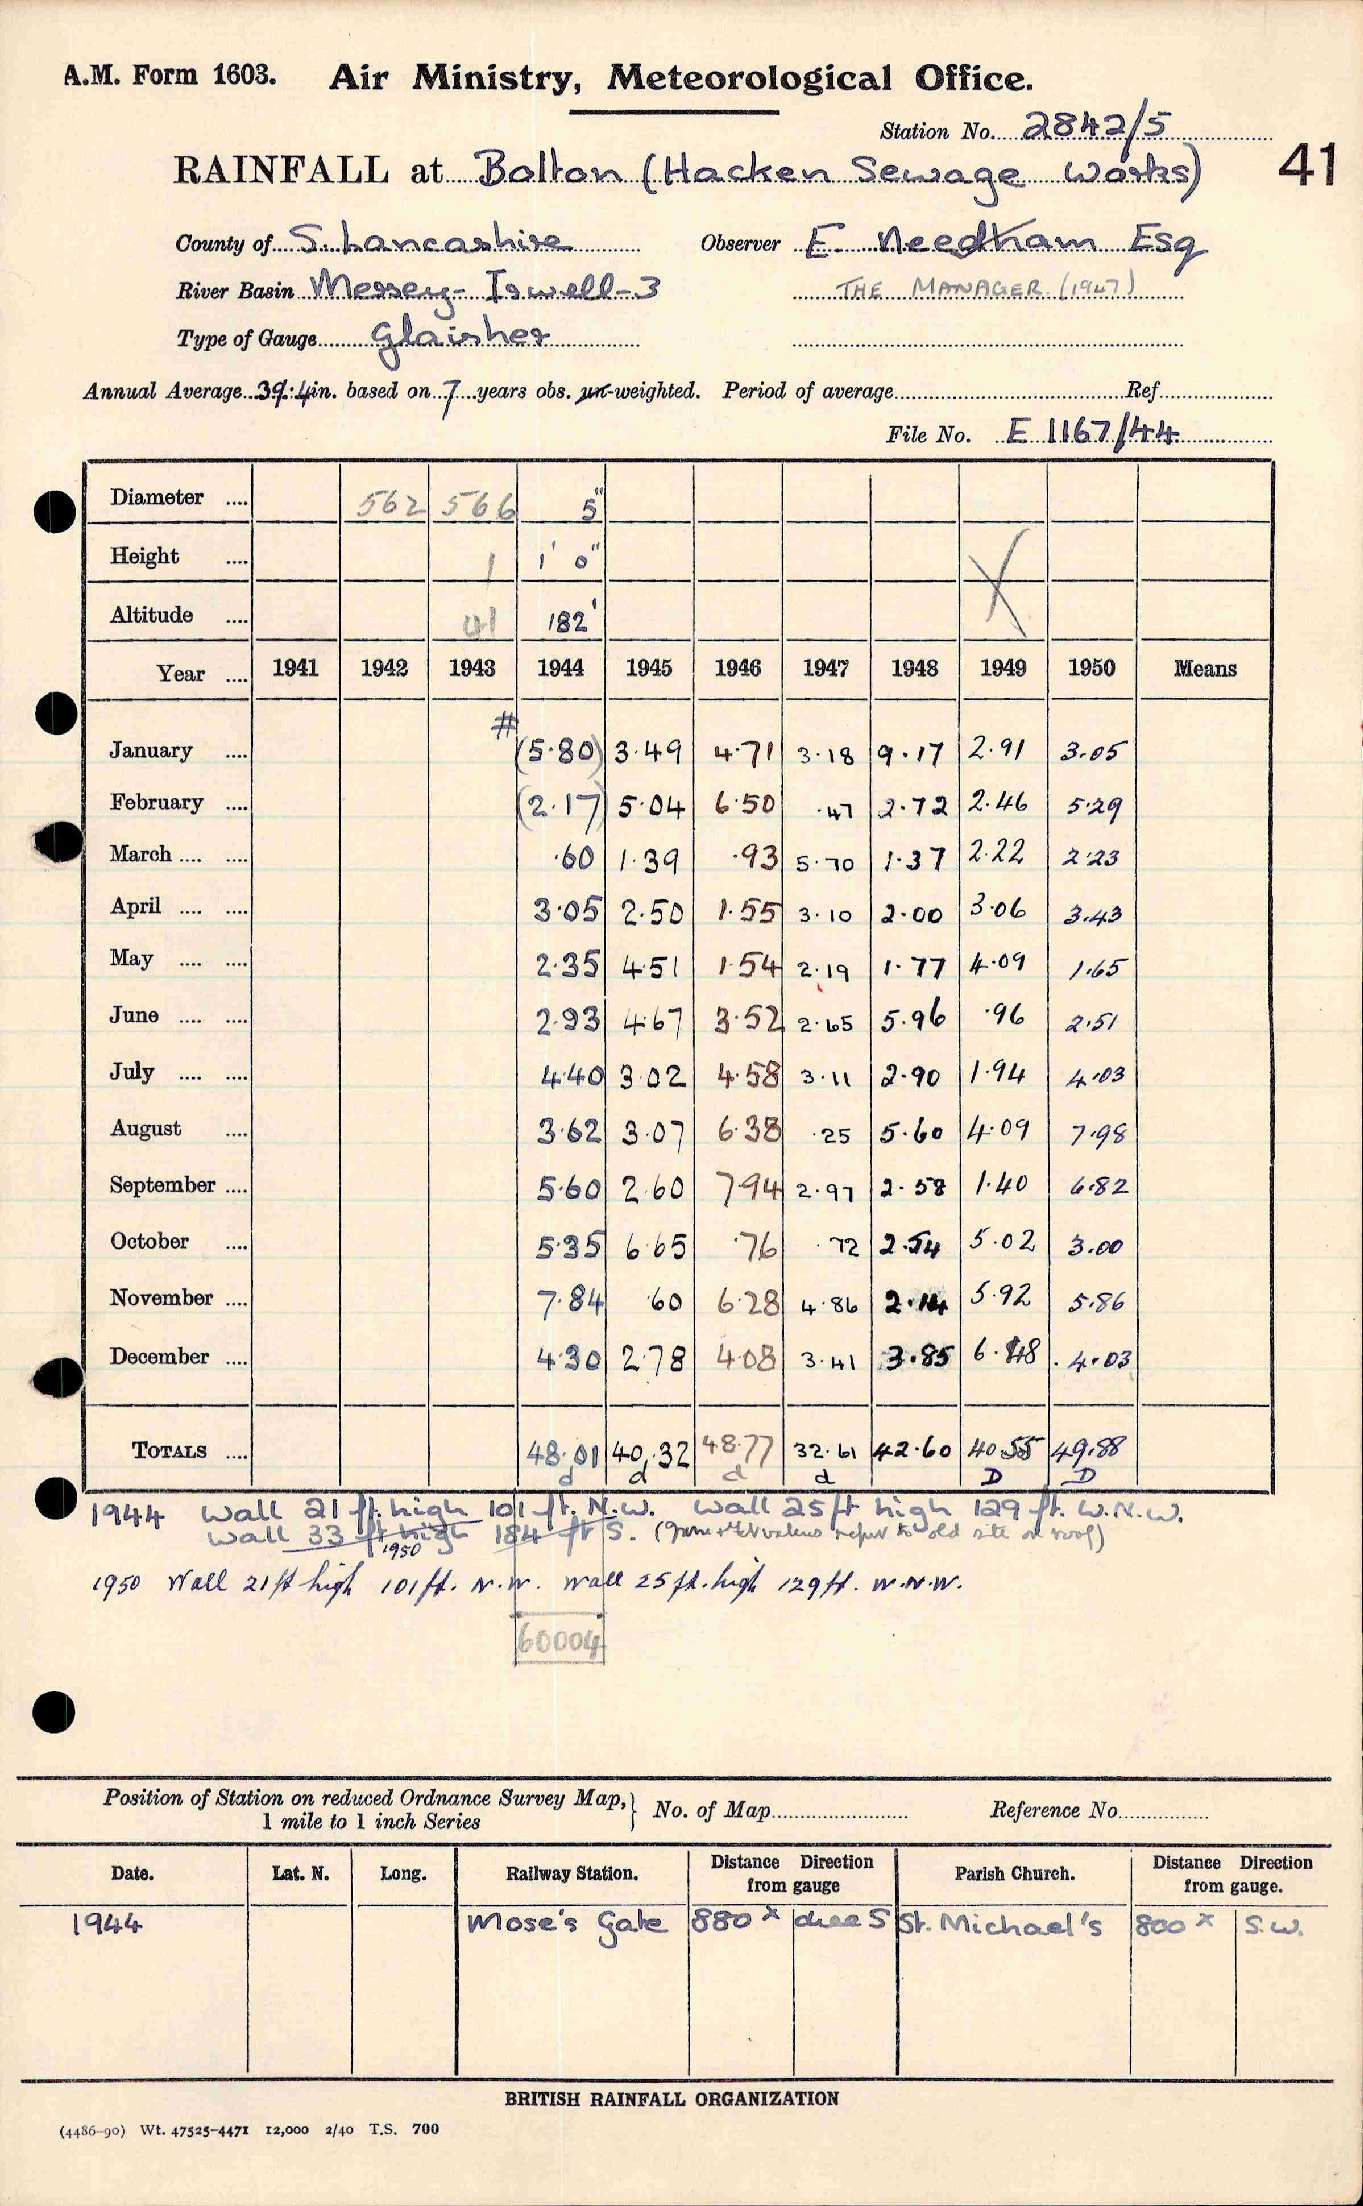 A.M. Form 1603. Air Ministry, Meteorological Office.
Station No. 2842/5
41
RAINFALL at Bolton (Hacken Sewage Works)
County of S. Lancashire Observer E. Needham Esq
River Basin Mersey - Irwell - 3 THE MANAGER (1947)
Type of Gauge Glaisher
Annual Average 39.4 in. based on 7 years obs. un-weighted. Period of average Ref
File No. E 1167/44
Diameter .... 562 566 5"
Height .... 1 1' 0"
Altitude .... 41 182'
Year .... 1941 1942 1943 1944 1945 1946 1947 1948 1949 1950 Means
January .... # (5.80) 3.49 4.71 3.18 9.17 2.91 3.05
February .... (2.17) 5.04 6.50 .47 2.72 2.46 5.29
March .... .... .60 1.39 .93 5.70 1.37 2.22 2.23
April .... .... 3.05 2.50 1.55 3.10 2.00 3.06 3.43
May .... .... 2.35 4.51 1.54 2.19 1.77 4.09 1.65
June .... .... 2.93 4.67 3.52 2.65 5.96 .96 2.51
July .... .... 4.40 3.02 4.58 3.11 2.90 1.94 4.03
August .... 3.62 3.07 6.38 .25 5.60 4.09 7.98
September .... 5.60 2.60 7.94 2.97 2.58 1.40 6.82
October .... 5.35 6.65 .76 .72 2.54 5.02 3.00
November .... 7.84 .60 6.28 4.86 2.14 5.92 5.86
December .... 4.30 2.78 4.08 3.41 3.85 6.48 4.03
TOTALS .... 48.01 40.32 48.77 32.61 42.60 40.55 49.88
d d d d D D
1944 Wall 21 ft. high 101 ft. N.W. Wall 25 ft high 129 ft. W.N.W.
Wall 33 ft high 184 ft S. (Jan + Feb values refer to old site on roof)
1950
1950 Wall 21 ft high 101 ft. N.W. Wall 25 ft. high 129 ft. W.N.W.
60004
Position of Station on reduced Ordnance Survey Map, 1 mile to 1 inch Series } No. of Map Reference No.
Date. Lat. N. Long. Railway Station. Distance Direction from gauge Parish Church. Distance Direction from gauge.
1944 Mose's Gate 880 x due S St. Michael's 800 x S.W.
BRITISH RAINFALL ORGANIZATION
(4486-90) Wt. 47525-4471 12,000 2/40 T.S. 700